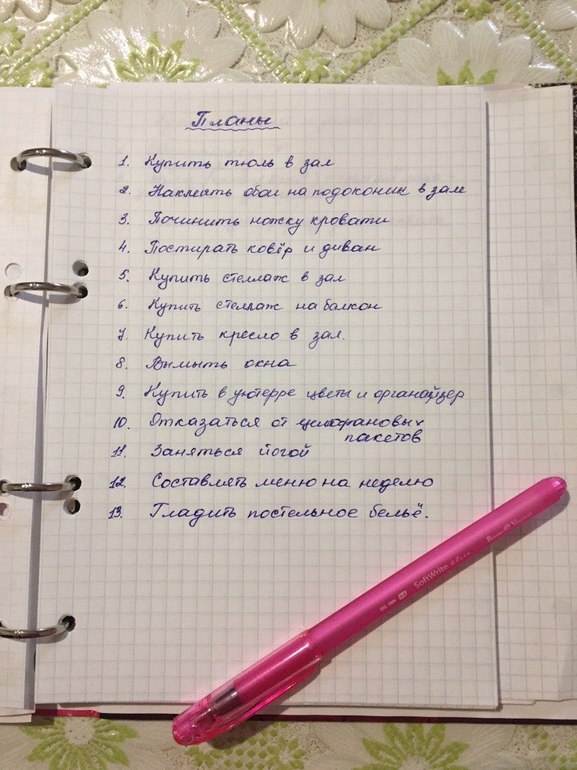 Планы
1. Купить тюль в зал
2. Наклеить обои на подоконик в зале
3. Починить ножку кровати
4. Постирать ковёр и диван
5. Купить стеллаж в зал
6. Купить стеллаж на балкон
7. Купить кресло в зал.
8. Вымыть окна
9. Купить в уютерре цветы и органайзер
10. Отказаться от целлофановых
пакетов
11. Заняться йогой
12. Составлять меню на неделю
13. Гладить постельное бельё.
SoftWrite